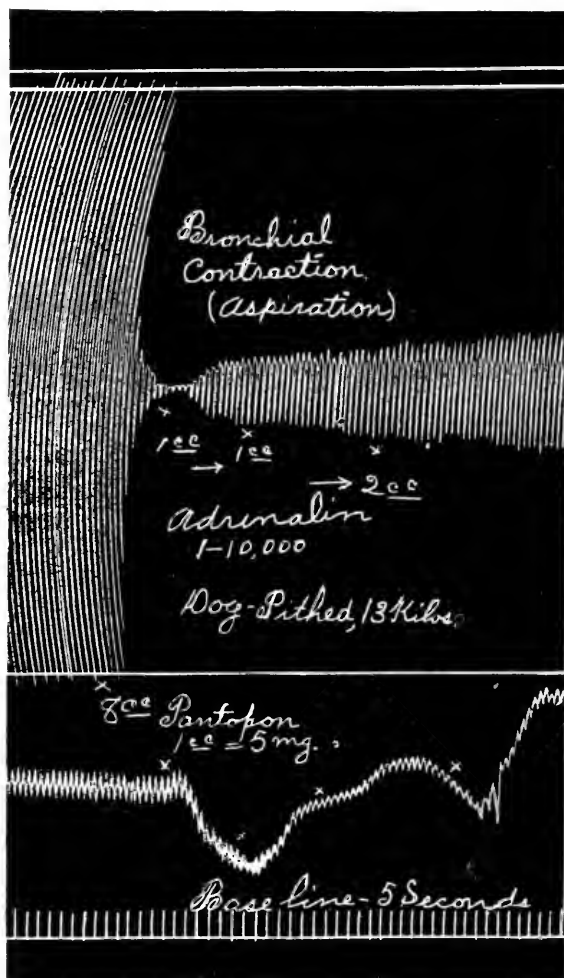 Bronchial
Contraction
(Aspiration)
1cc → 1cc
→ 2cc
Adrenalin
1-10,000
Dog-Pithed, 13 Kilos.
8cc Pantopon
1cc = 5 mg.
Base line - 5 Seconds